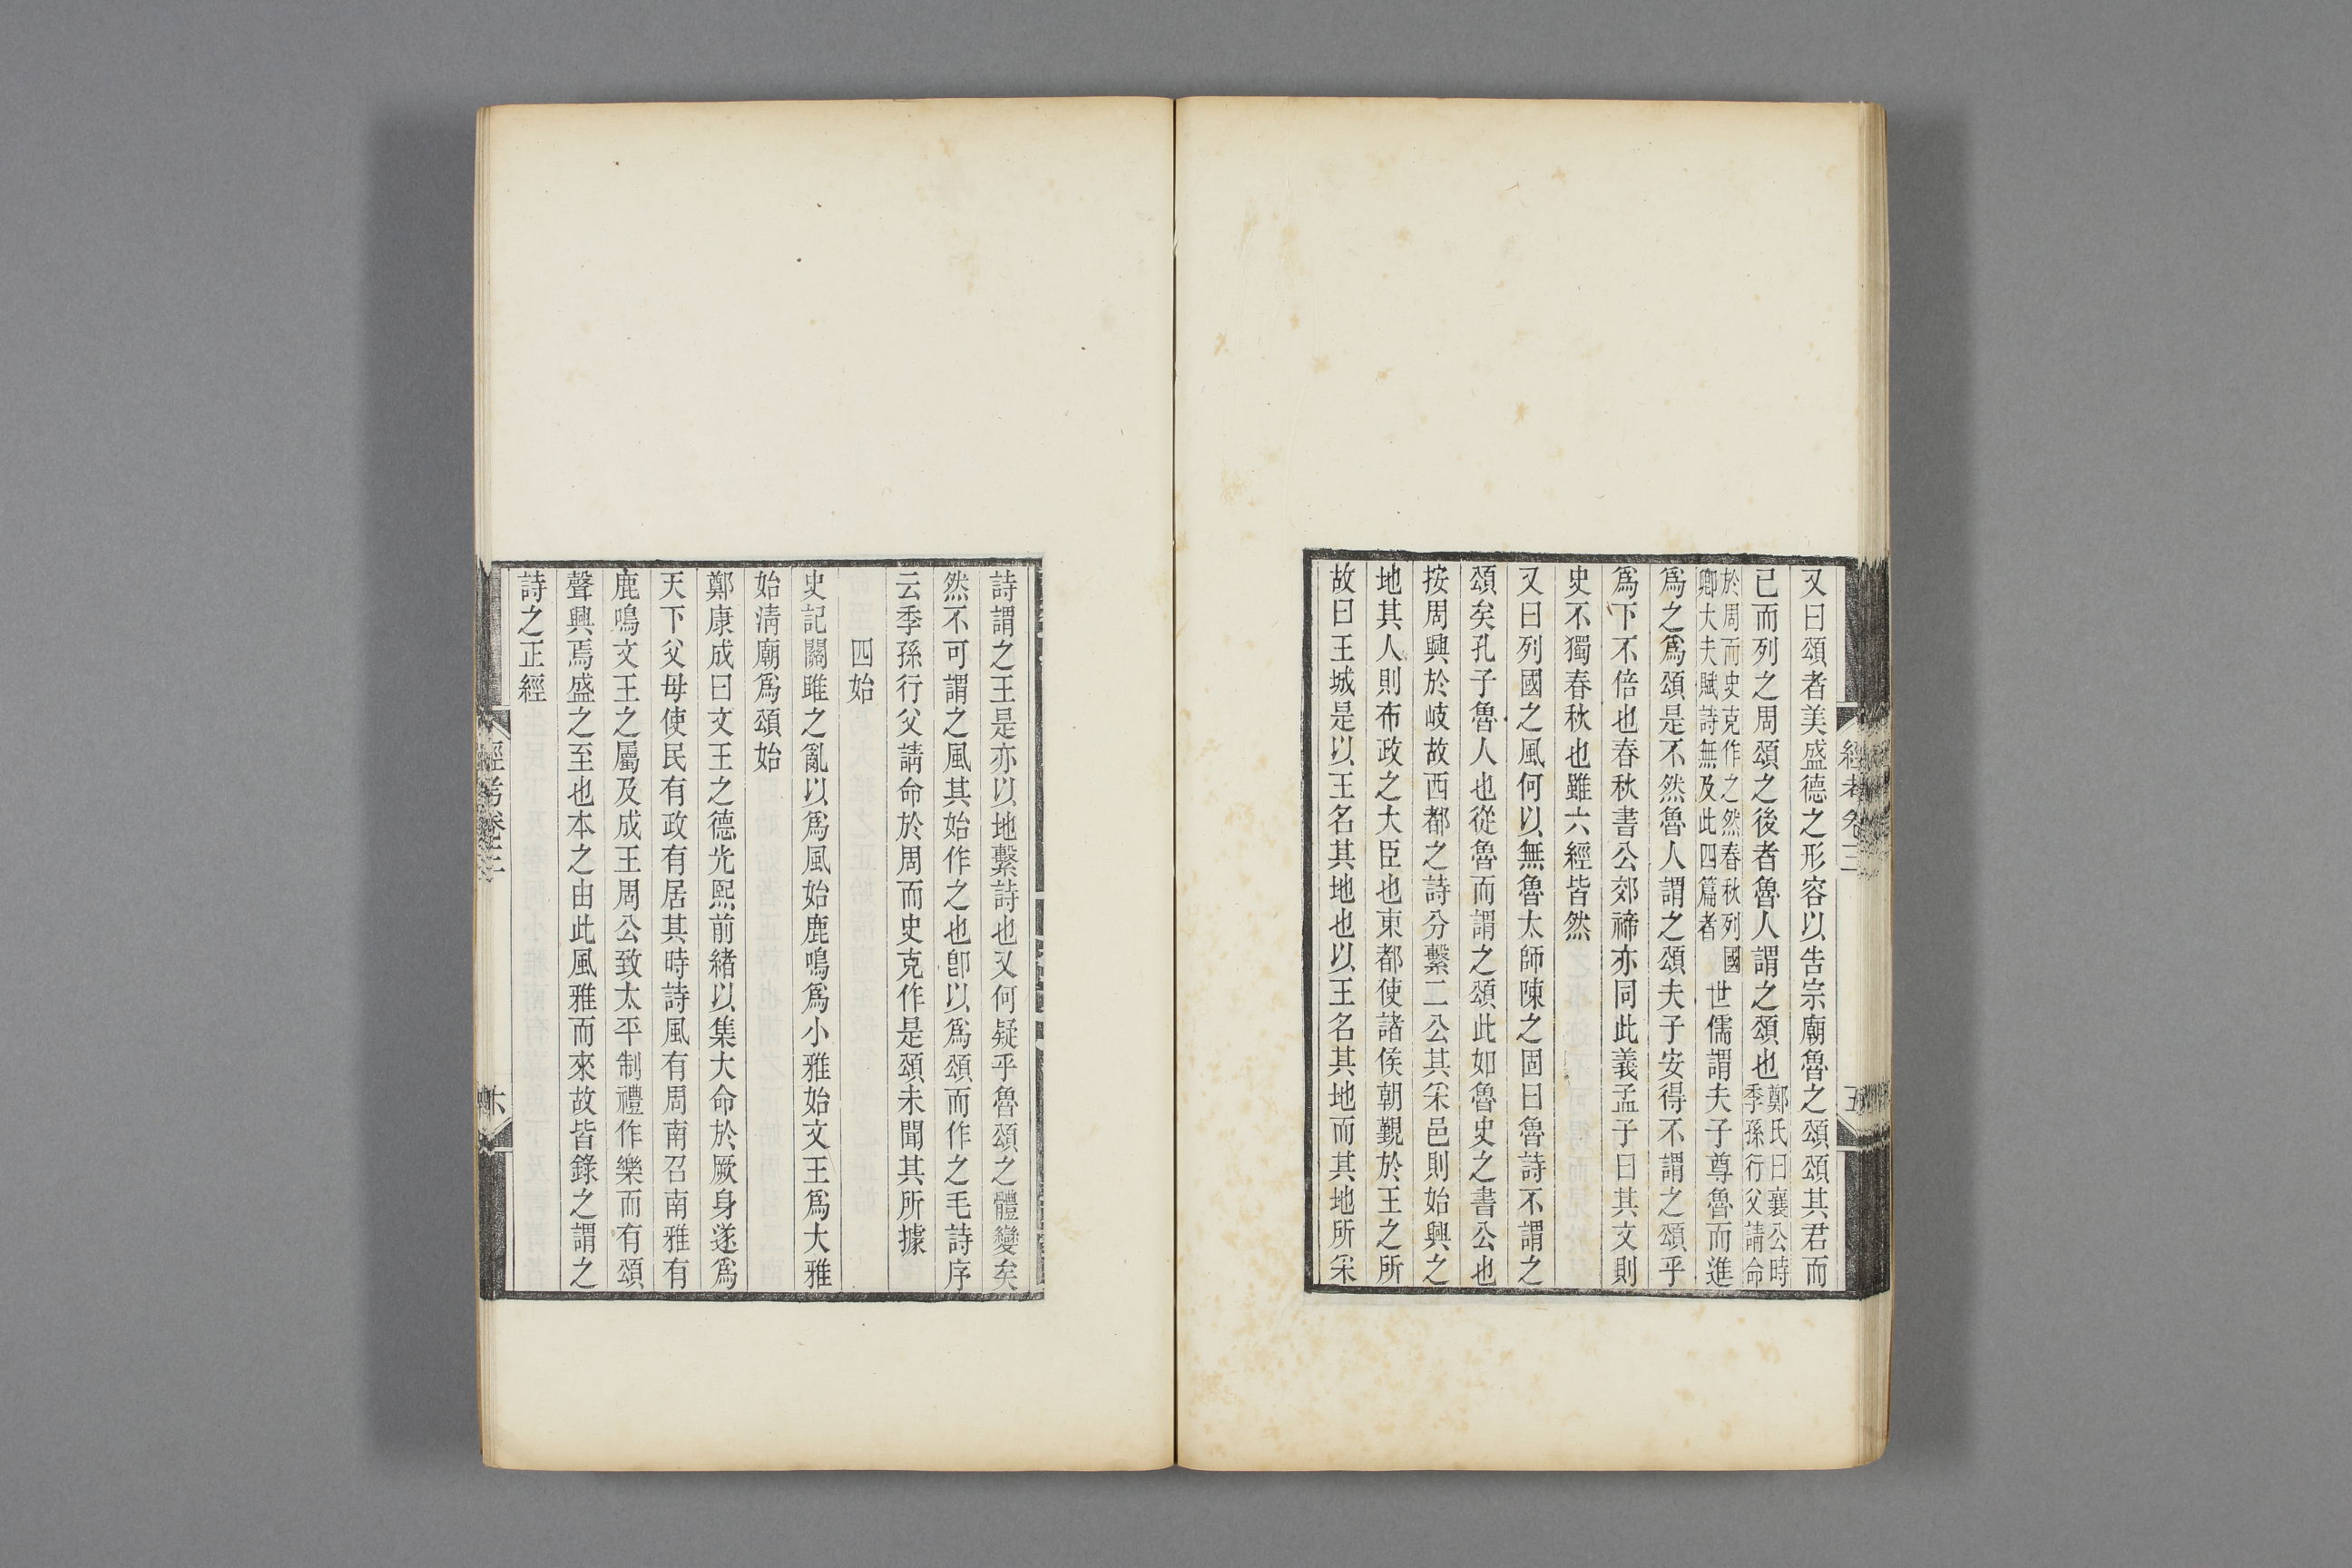 又曰頌者美盛德之形容以告宗廟魯之頌頌其君而
已而列之周頌之後者魯人謂之頌也鄭氏曰襄公時季孫行父請命
於周而史克作之然春秋列國卿大夫賦詩無及此四篇者世儒謂夫子尊魯而進
爲之爲頌是不然魯人謂之頌夫子安得不謂之頌乎
爲下不倍也春秋書公郊禘亦同此義孟子曰其文則
史不獨春秋也雖六經皆然
又曰列國之風何以無魯太師陳之固曰魯詩不謂之
頌矣孔子魯人也從魯而謂之頌此如魯史之書公也
按周興於岐故西都之詩分繫二公其采邑則始興之
地其人則布政之大臣也東都使諸侯朝觀於王之所
故曰王城是以王名其地也以王名其地而其地所采
經考卷三
五
詩謂之王是亦以地繫詩也又何疑乎魯頌之體變矣
然不可謂之風其始作之也卽以爲頌而作之毛詩序
云季孫行父請命於周而史克作是頌未聞其所據
四始
史記關雎之亂以爲風始鹿鳴爲小雅始文王爲大雅
始淸廟爲頌始
鄭康成曰文王之德光熙前緒以集大命於厥身遂爲
天下父母使民有政有居其時詩風有周南召南雅有
鹿鳴文王之屬及成王周公致太平制禮作樂而有頌
聲興焉盛之至也本之由此風雅而來故皆錄之謂之
詩之正經
經考卷三
六